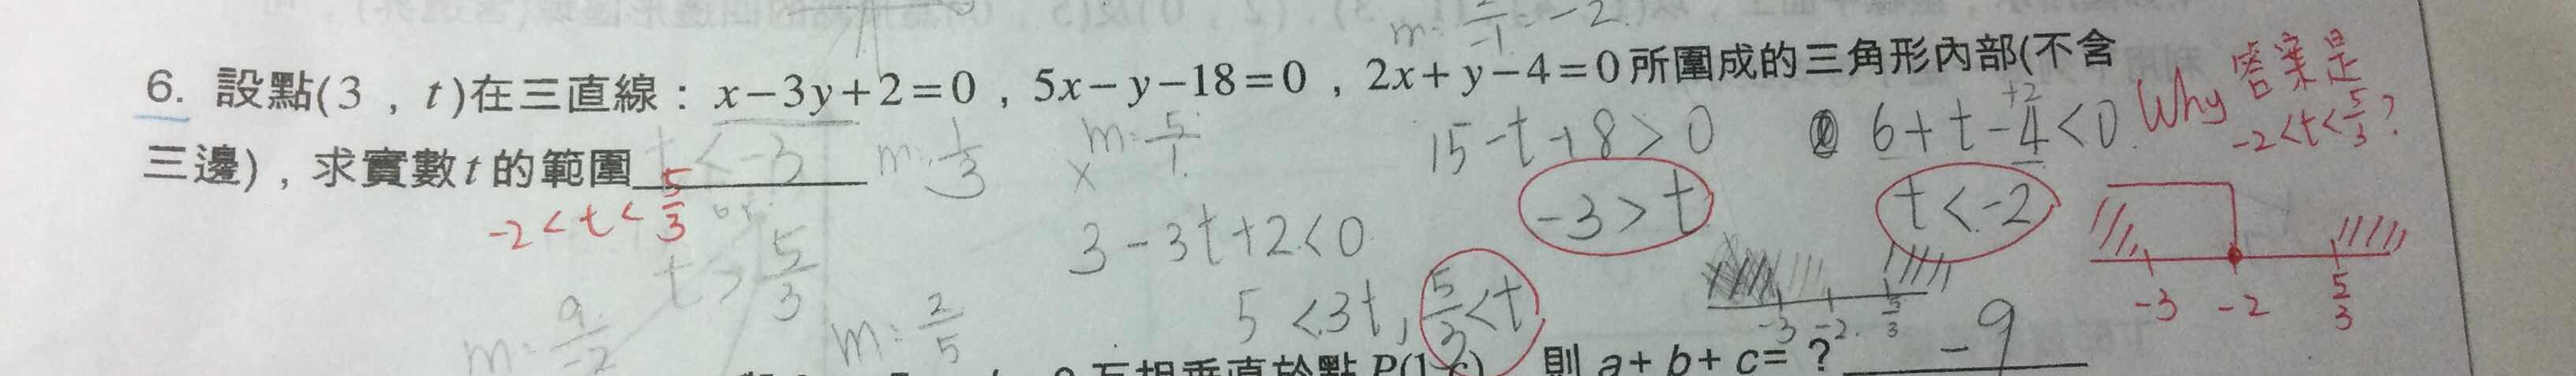 m: 2/-1 = -2.
6. 設點(3 , t)在三直線：x-3y+2=0 , 5x-y-18=0 , 2x+y-4=0所圍成的三角形內部(不含
三邊) , 求實數t的範圍
t < -3
-2 < t < 5/3
or
t > 5/3
m: 1/3
m: 5/1
x
3-3t+2<0
5<3t, 5/3<t
15-t+8>0
-3>t
6+t-4<0
+2
t<-2
-3 -2. 5/3
Why 答案是
-2<t<5/3?
-3 -2 5/3
m: 9/-2
m: 2/5
互相垂直於點 P(1, c) 則 a+b+c=? -9